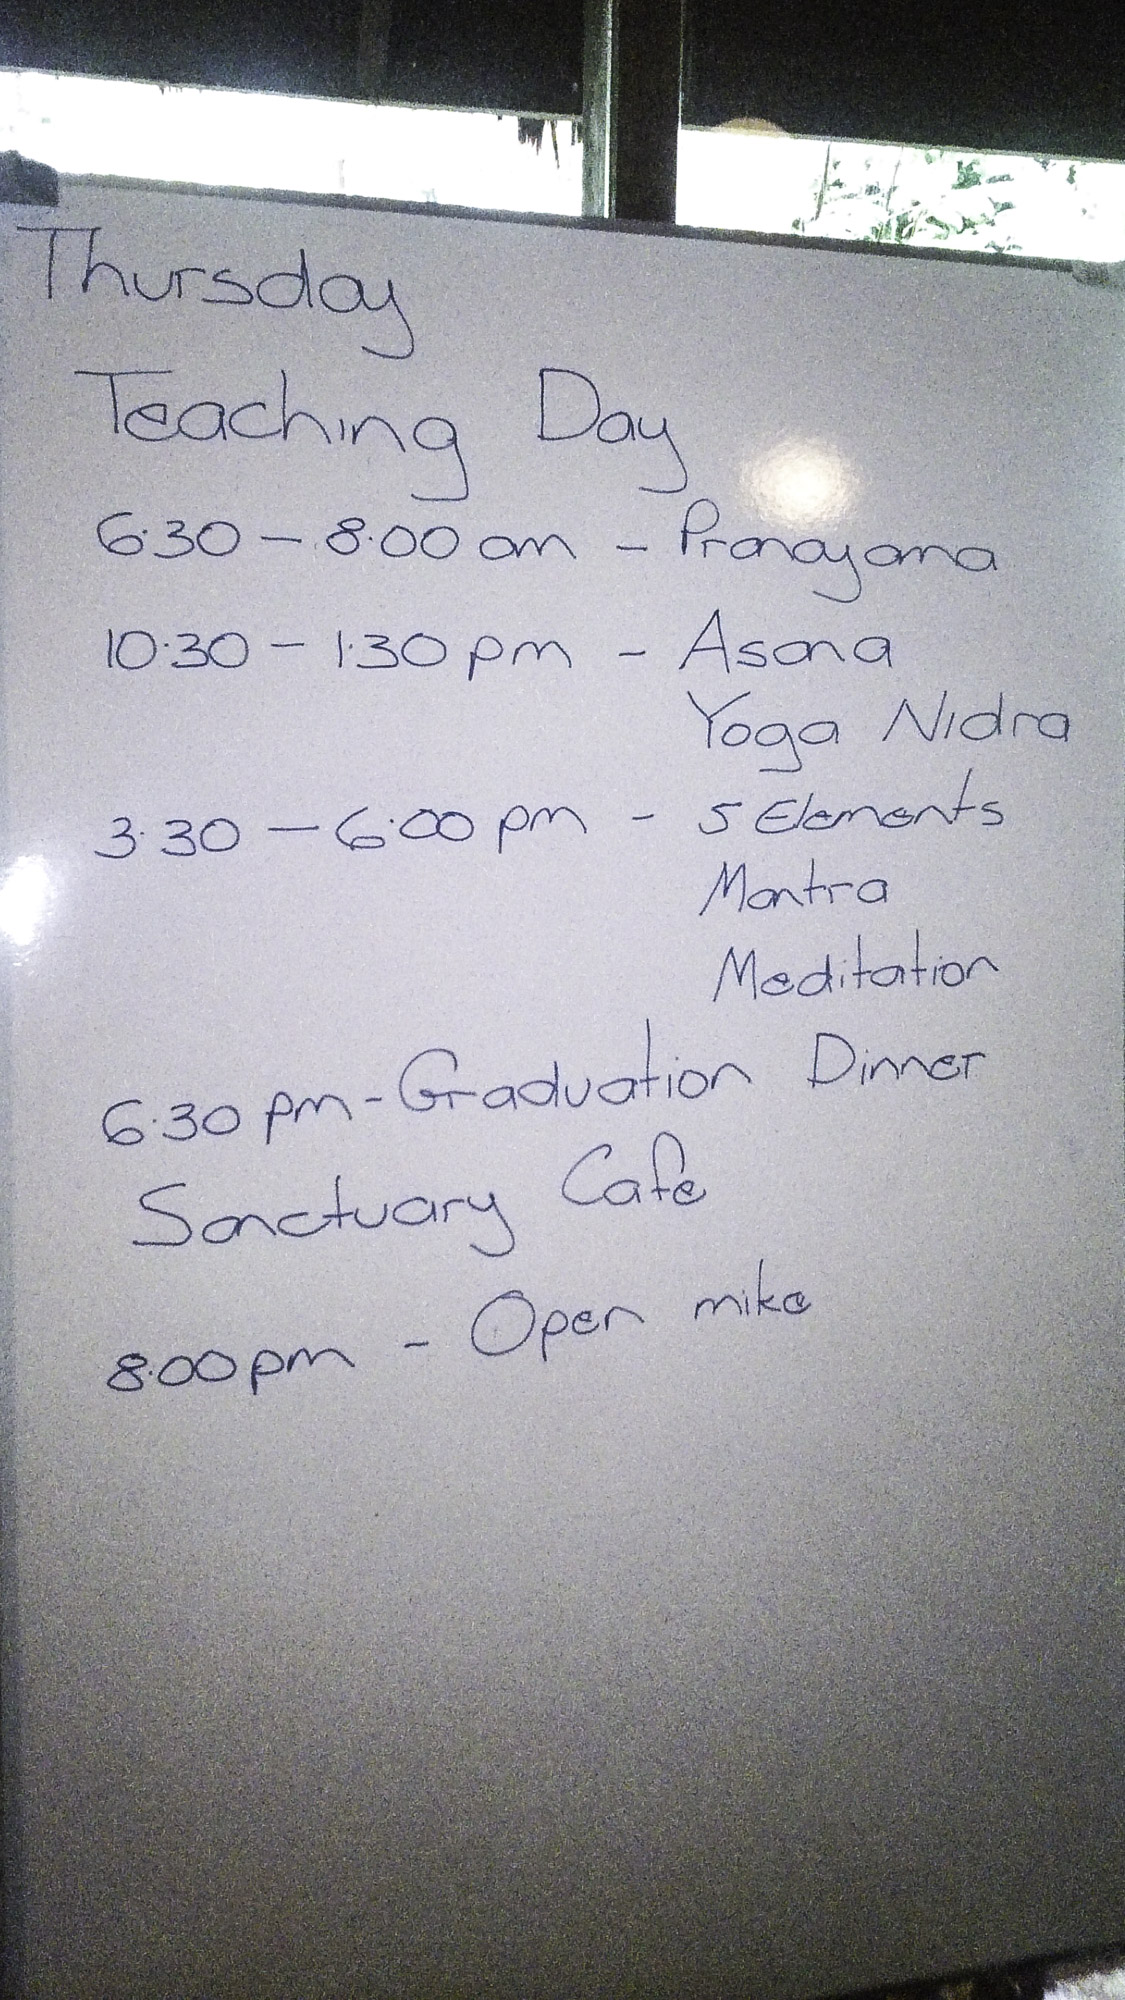 Thursday
Teaching Day
6.30 – 8.00 am – Pranayama
10.30 – 1.30 pm – Asana
Yoga Nidra
3.30 – 6.00 pm – 5 Elements
Mantra
Meditation
6.30 pm – Graduation Dinner
Sanctuary Cafe
8.00 pm – Open mike